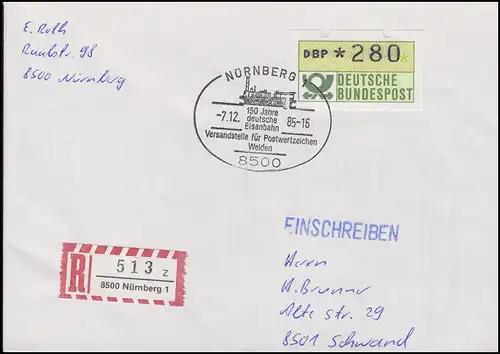 E. Roth
Raabstr. 98
8500 Nürnberg
DBP *280
DEUTSCHE
BUNDESPOST
NÜRNBERG
150 Jahre
deutsche
Eisenbahn
-7.12. 85-16
Versandstelle für Postwertzeichen
Weiden
8500
EINSCHREIBEN
R 513 z
8500 Nürnberg 1
Herrn
H. Brunner
Alte Str. 29
8501 Schwand